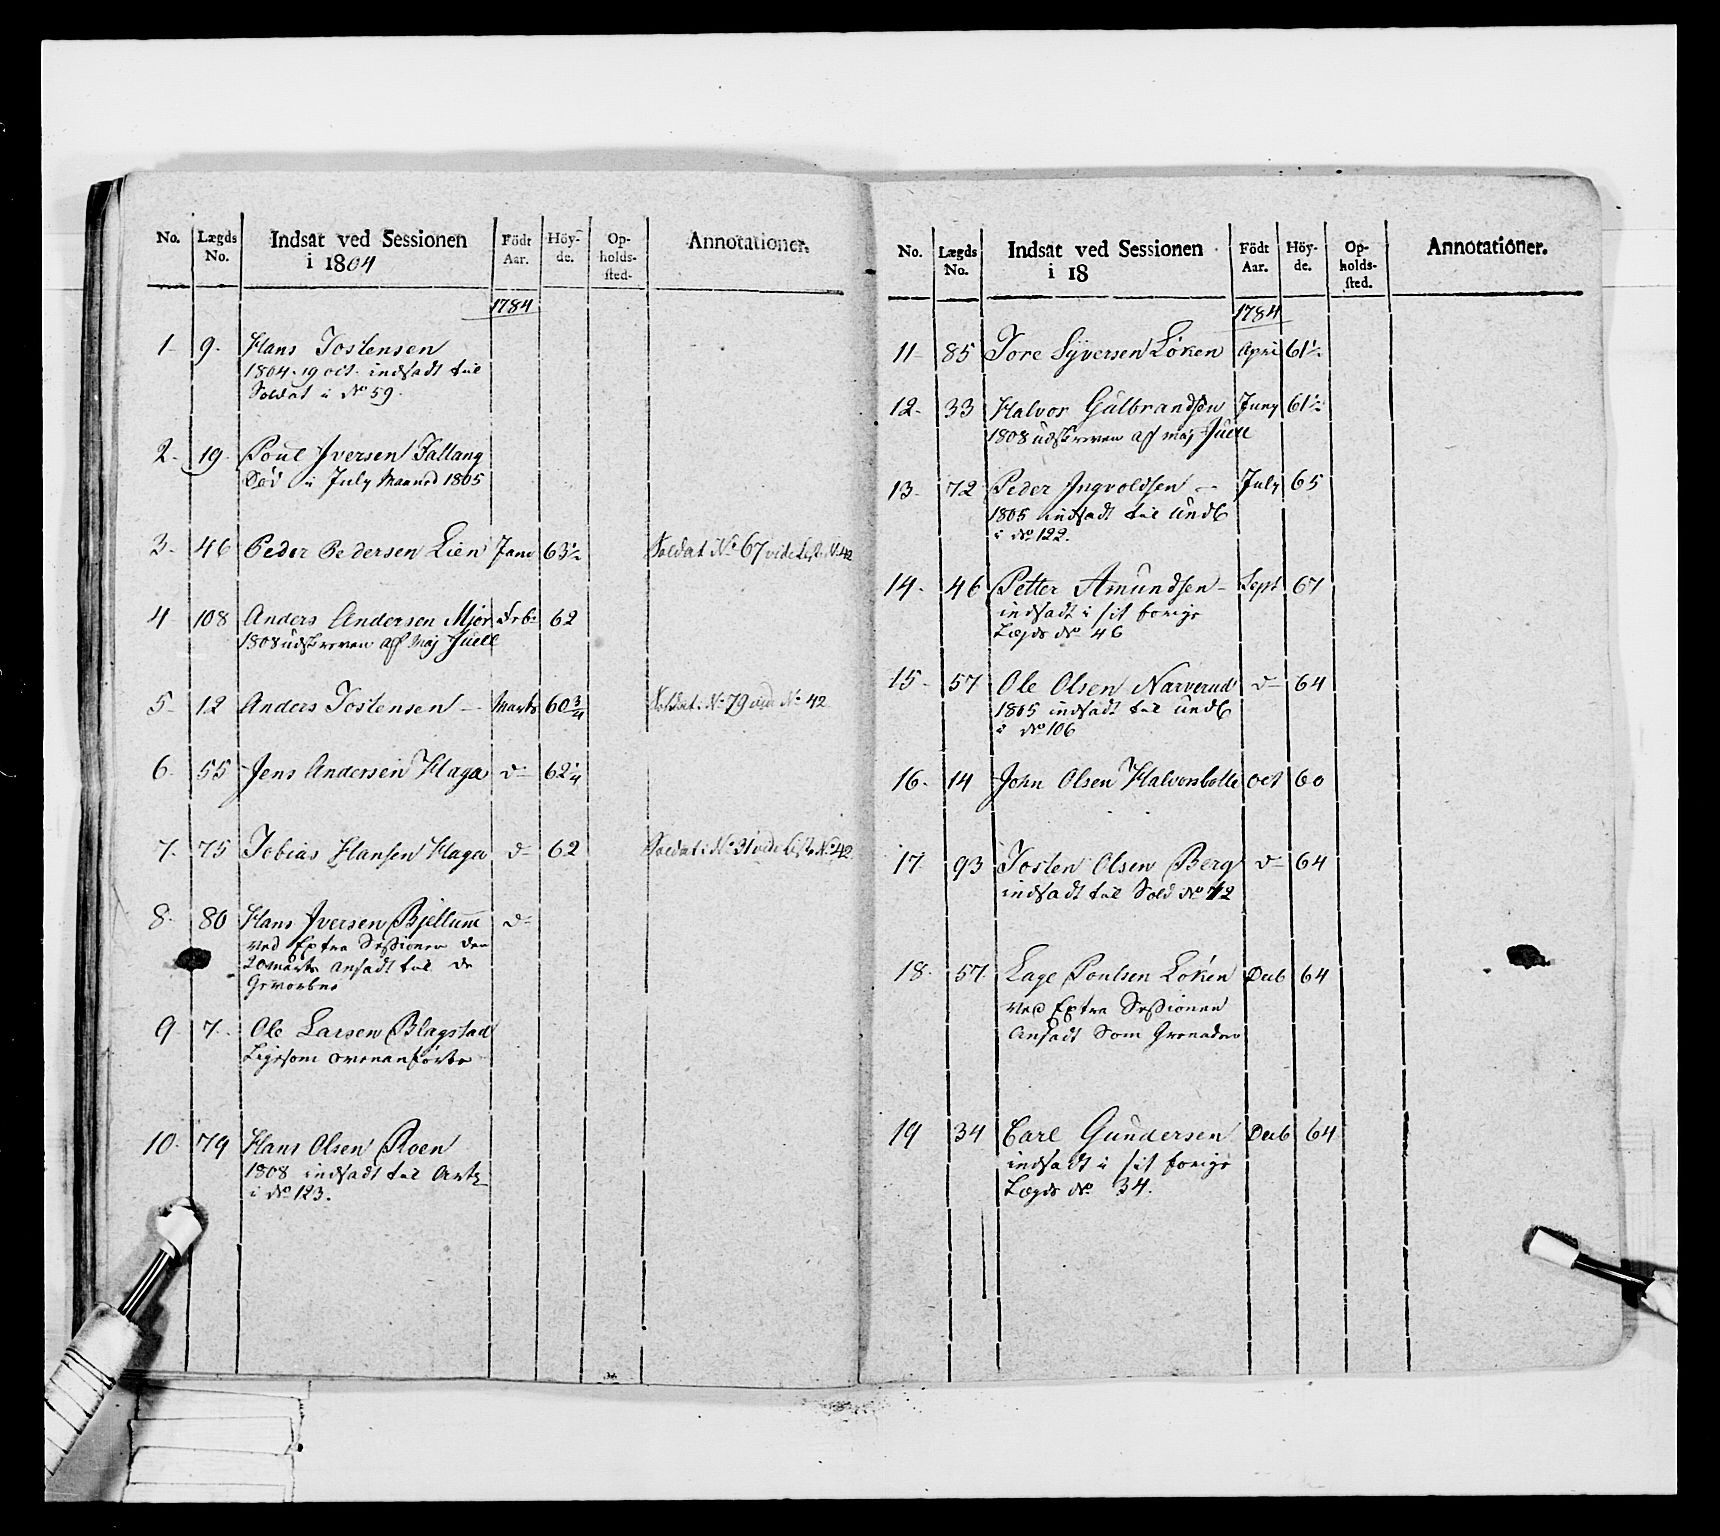 No. Lægds No. Indsat ved Sessionen i 1804 Födt Aar. Höy-de. Op-holds-sted. Annotationer.
1784
1 9 Hans Jostensen
1804. 19 oct. indsadt til
Soldat i No 59.
2. 19. Poul Iversen Fallang
Död i July Maaned 1805
3. 46 Peder Pedersen Lien Janv 63½ Soldat No 67 vide Liste No 42
4 108 Anders Andersen Mjør Feb: 62
1808 udskreven af Maj Juell
5 12 Anders Jostensen — Marts 60¾ Soldat i No 79 vide No 42
6. 55 Jens Andersen Haga d— 62¼
7. 75 Tobias Hansen Haga d— 62 Soldat i No 31 vide Liste No 42
8. 80 Hans Iversen Bjellum d—
ved Extra Sessionen den
20 Marts ansadt til de
Gevorbne
9 7. Ole Larsen Blagstad
Ligesom ovenanförte
10. 79 Hans Olsen Roen
1808 indsadt til
i No 123.
No. Lægds No. Indsat ved Sessionen i 18 Födt Aar. Höy-de. Op-holds-sted. Annotationer.
1784
11 85 Tore Syversen Løken April 61½
12. 33 Halvor Gulbrandsen Juny 61½
1808 udskreven af Maj Juell
13. 72 Peder Ingvoldsen — July 65
1805 indsadt til
i No 122.
14. 46 Petter Amundsen — Sept 67
indsadt i sit forige
Lægds No 46
15 57 Ole Olsen Narverud d— 64
1805 indsadt til
i No 106
16. 14 John Olsen Halvorsbølle Oct 60
17 93 Josten Olsen Berg d— 64
indsadt til Sold No 42
18. 57 Lage Poulsen Løken Decb 64
ved Extra Sessionen
Ansadt Som Grenadeer
19 34 Carl Gundersen Decb 64
indsadt i sit forige
Lægds No 34.